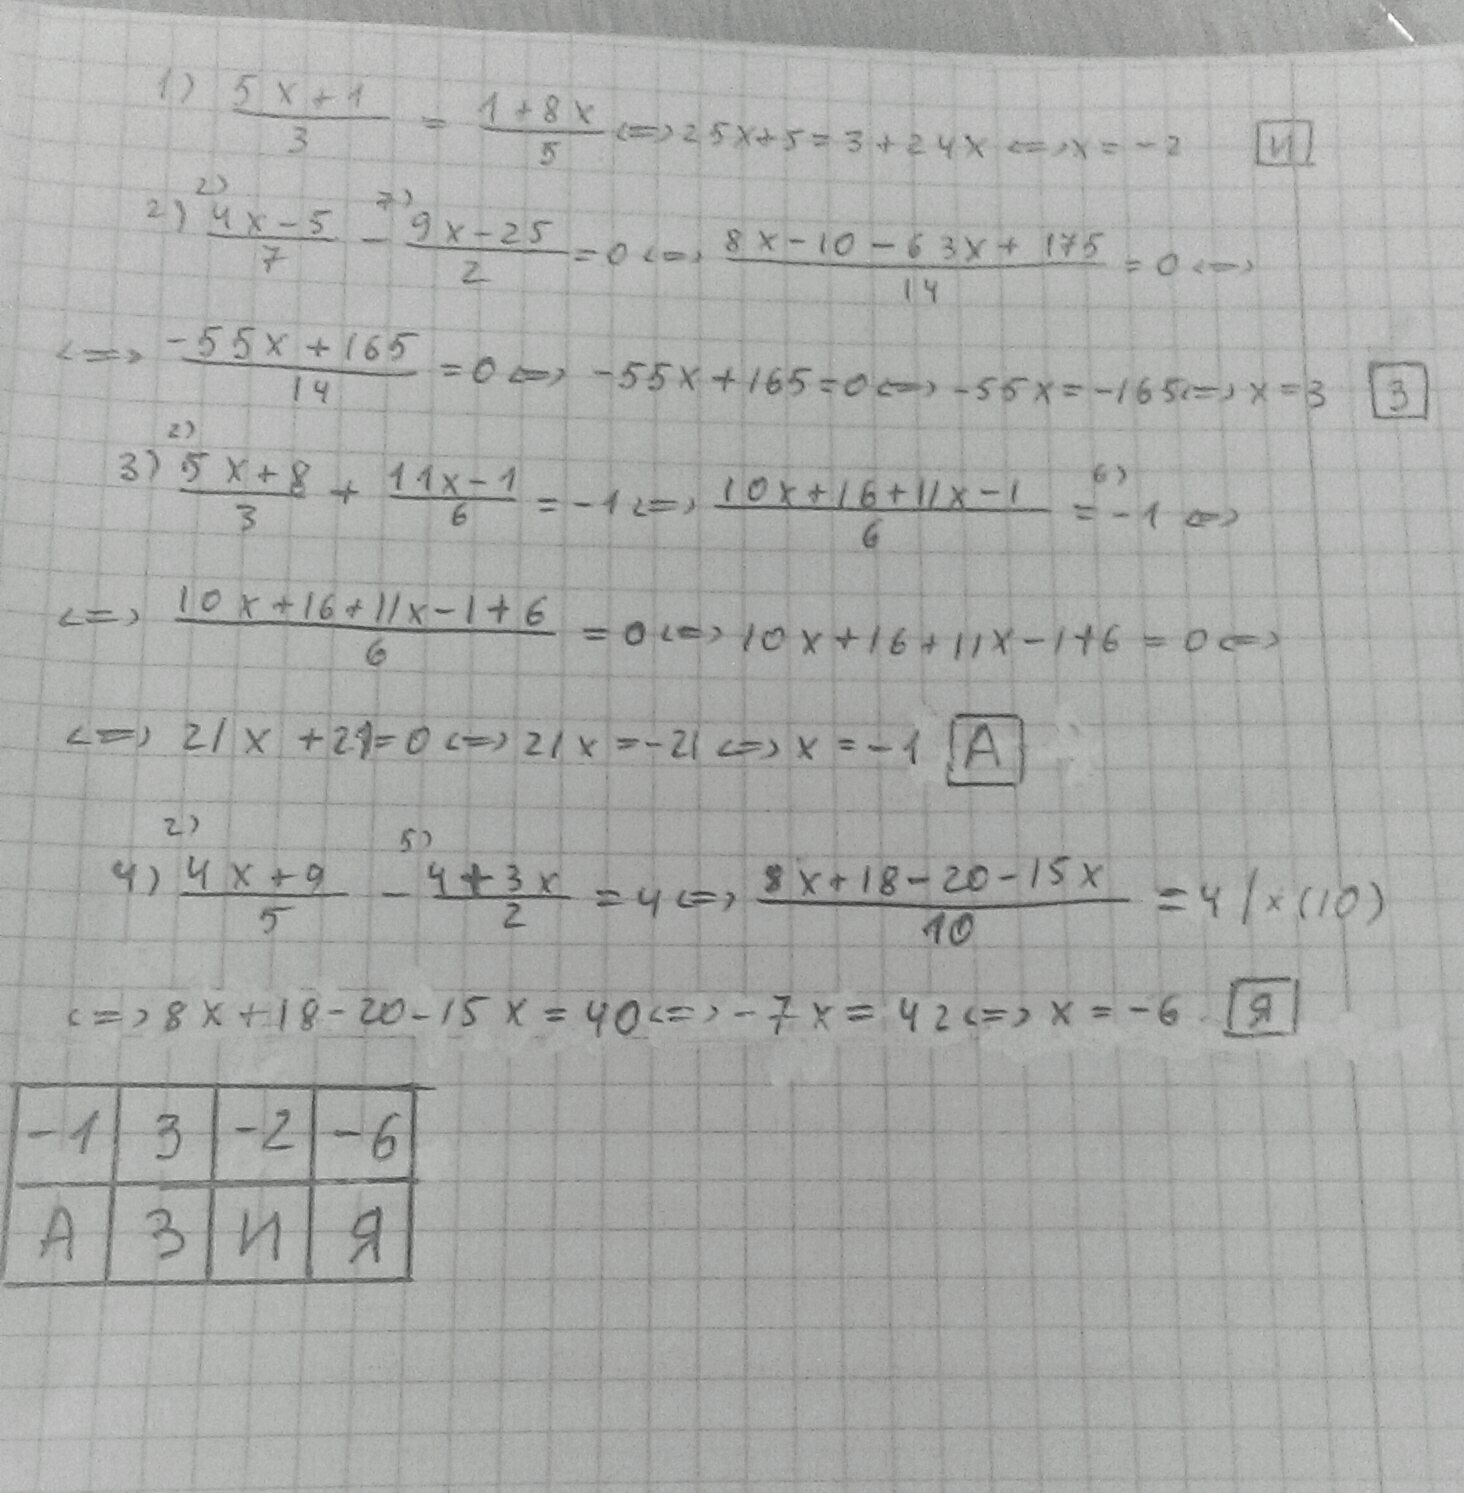 1) (5x+1)/3 = (1+8x)/5 <=> 25x+5=3+24x <=> x=-2 И
2) 2) (4x-5)/7 - 7) (9x-25)/2 = 0 <=> (8x-10-63x+175)/14 = 0 <=>
<=> (-55x+165)/14 = 0 <=> -55x+165=0 <=> -55x=-165 <=> x=3 З
3) 2) (5x+8)/3 + (11x-1)/6 = -1 <=> (10x+16+11x-1)/6 = 6) -1 <=>
<=> (10x+16+11x-1+6)/6 = 0 <=> 10x+16+11x-1+6=0 <=>
<=> 21x+21=0 <=> 21x=-21 <=> x=-1 А
4) 2) (4x+9)/5 - 5) (4+3x)/2 = 4 <=> (8x+18-20-15x)/10 = 4 /x(10)
<=> 8x+18-20-15x=40 <=> -7x=42 <=> x=-6 Я
-1 3 -2 -6
А З И Я